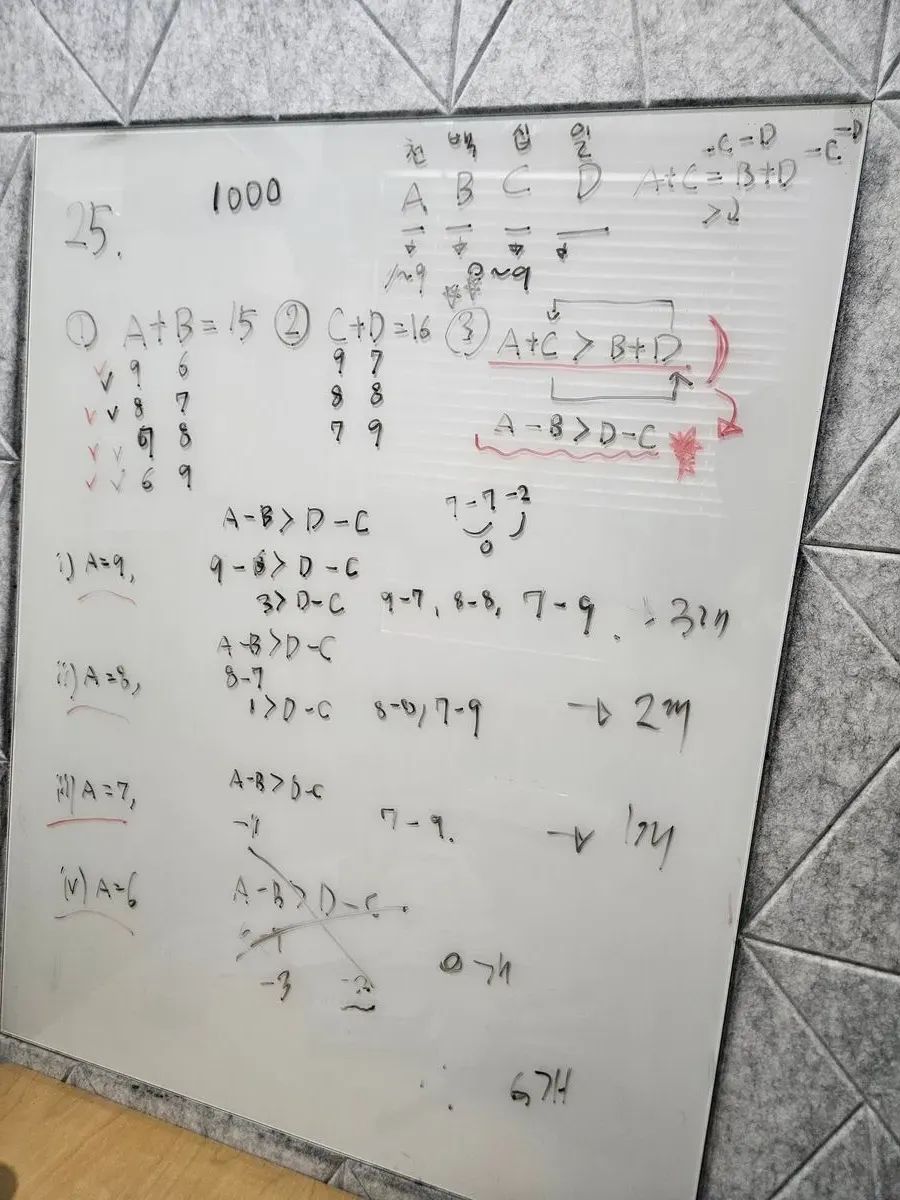 천 백 십 일
-C=D -C-D
1000
A B C D A+C=B+D
25.
1~9 0~9
① A+B=15 ② C+D=16 ③ A+C > B+D
9 6 9 7
8 7 8 8
7 8 7 9
6 9
A-B > D-C
A-B > D-C 7-7-2
0
i) A=9, 9-6 > D-C
3 > D-C 9-7, 8-8, 7-9. 3개
A-B > D-C
ii) A=8, 8-7
1 > D-C 8-8, 7-9 → 2개
iii) A=7, A-B > D-C
-1 7-9. → 1개
iv) A=6 A-B > D-C
-3 -2 0개
∴ 6개